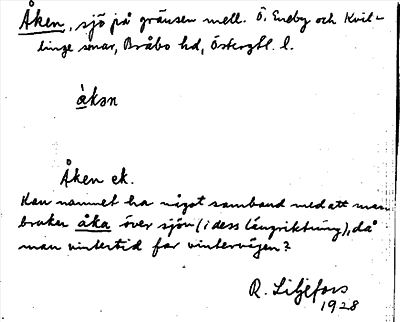 Åken, sjö på gränsen mell. Ö. Eneby och Kvil-
linge snar, Bråbo hd, Östergtl. l.
åkən
Åken ek.
Kan namnet ha något samband med att man
bruker åka över sjön (i dess längriktning), då
man vintertid far vintervägen?
R. Liljefors
1928